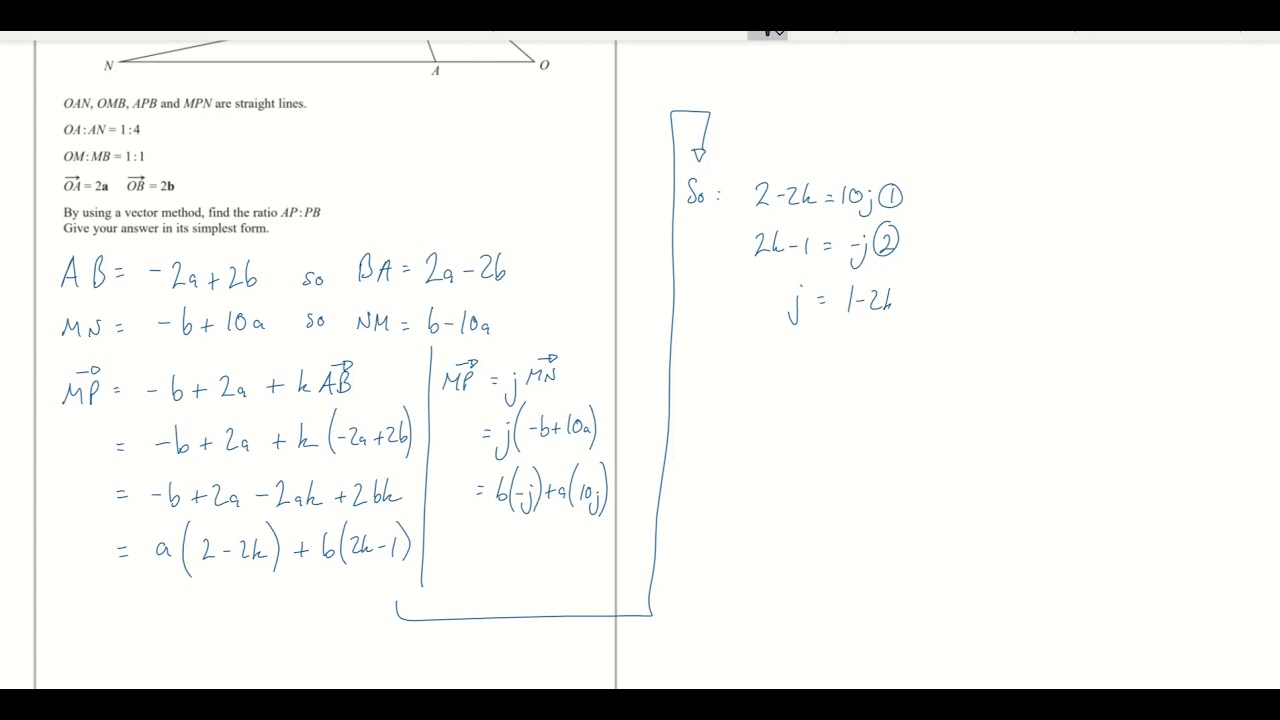 N A O
OAN, OMB, APB and MPN are straight lines.
OA : AN = 1 : 4
OM : MB = 1 : 1
→OA = 2a →OB = 2b
By using a vector method, find the ratio AP : PB
Give your answer in its simplest form.
AB = -2a + 2b so BA = 2a - 2b
MN = -b + 10a so NM = b - 10a
→MP = -b + 2a + k→AB
= -b + 2a + k(-2a + 2b)
= -b + 2a - 2ak + 2bk
= a(2 - 2k) + b(2k - 1)
→MP = j→MN
= j(-b + 10a)
= b(-j) + a(10j)
So: 2 - 2k = 10j ①
2k - 1 = -j ②
j = 1 - 2k